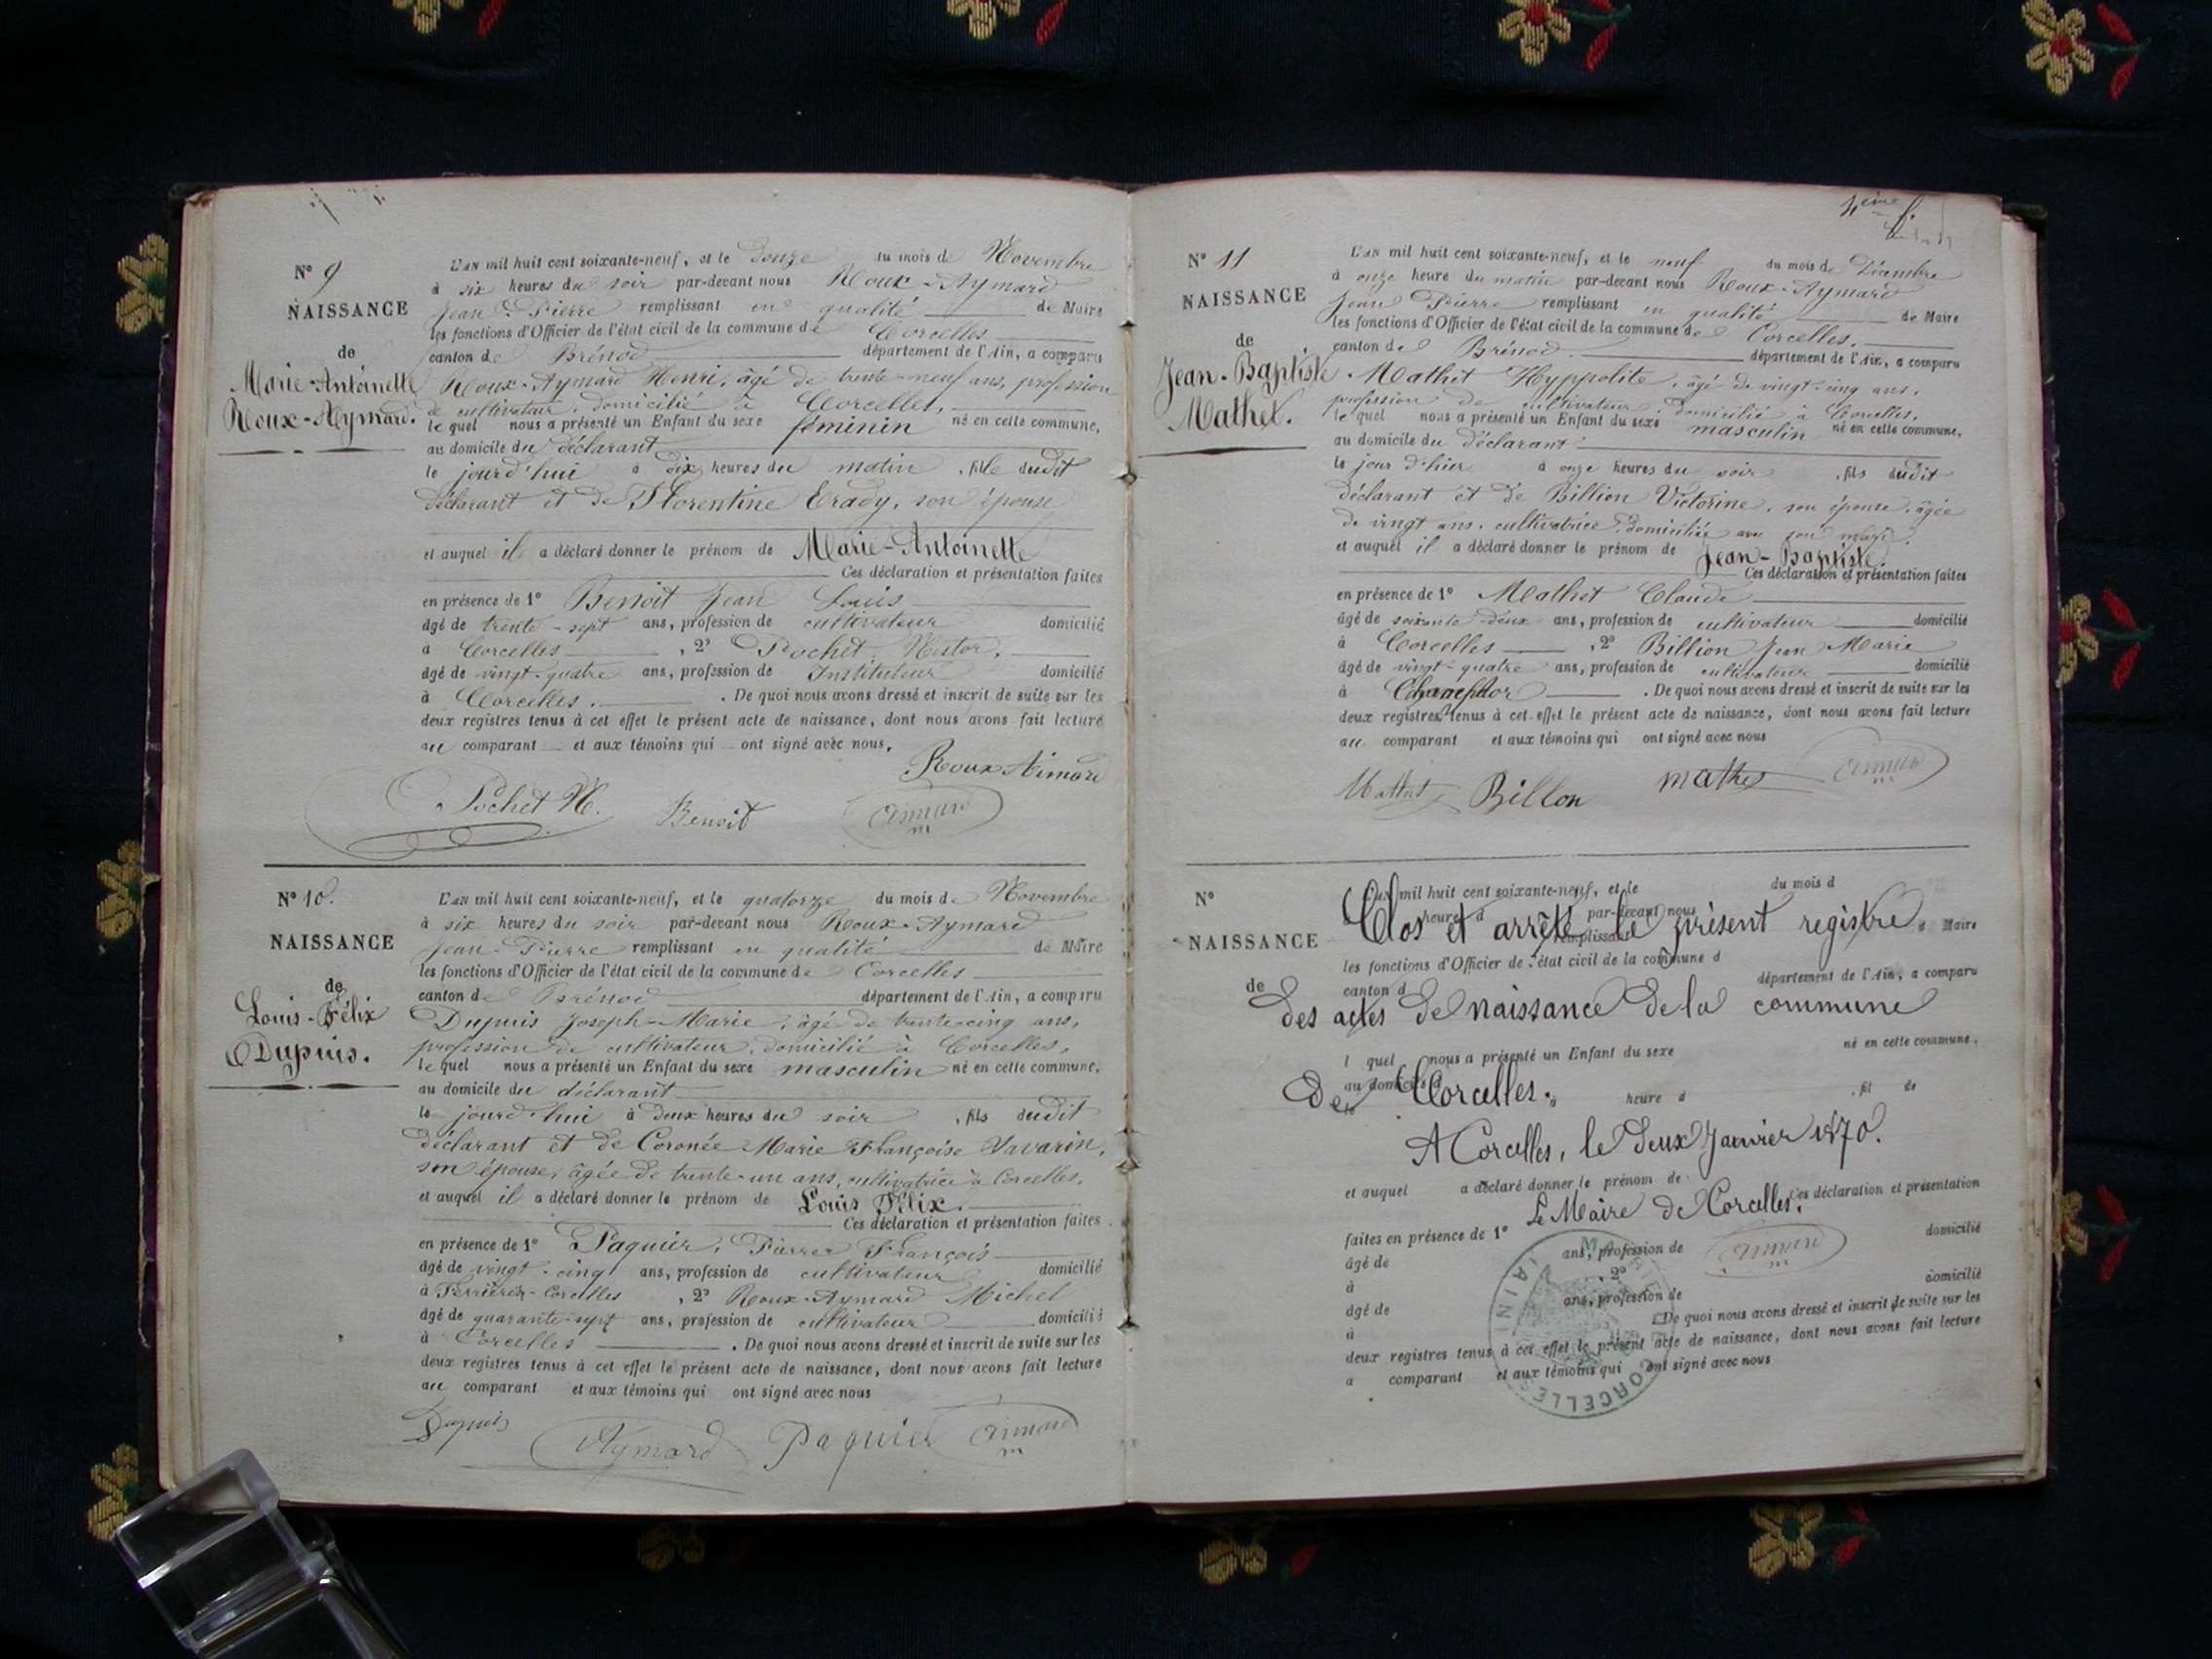 N° 9
NAISSANCE
de
Marie-Antoinette
Roux-Aymard.
L'AN mil huit cent soixante-neuf, et le douze du mois de Novembre
à six heures du soir par-devant nous Roux-Aymard
Jean-Pierre remplissant en qualité de Maire
les fonctions d'Officier de l'état civil de la commune de Corcelles
canton de Brénod département de l'Ain, a comparu
Roux-Aymard Henri, âgé de trente-neuf ans, profession
de cultivateur, domicilié à Corcelles,
lequel nous a présenté un Enfant du sexe féminin né en cette commune,
au domicile du déclarant
le jourd'hui à dix heures du matin , fille dudit
déclarant et de Florentine Erady, son épouse
et auquel il a déclaré donner le prénom de Marie-Antoinette
Ces déclaration et présentation faites
en présence de 1° Benoit Jean Louis
âgé de trente-sept ans, profession de cultivateur domicilié
à Corcelles , 2° Pochet,
âgé de vingt-quatre ans, profession de Instituteur domicilié
à Corcelles. . De quoi nous avons dressé et inscrit de suite sur les
deux registres tenus à cet effet le présent acte de naissance, dont nous avons fait lecture
au comparant et aux témoins qui ont signé avec nous.
Roux Aimard
Pochet N. Benoit Aimard
m
N° 10.
NAISSANCE
de
Louis-Félix
Dupuis.
L'AN mil huit cent soixante-neuf, et le quatorze du mois de Novembre
à six heures du soir par-devant nous Roux-Aymard
Jean-Pierre remplissant en qualité de Maire
les fonctions d'Officier de l'état civil de la commune de Corcelles
canton de Brénod département de l'Ain, a comparu
Dupuis Joseph-Marie, âgé de trente-cinq ans,
profession de cultivateur, domicilié à Corcelles,
lequel nous a présenté un Enfant du sexe masculin né en cette commune,
au domicile du déclarant
le jourd'hui à deux heures du soir , fils dudit
déclarant et de Coronée Marie Françoise Savarin,
son épouse, âgée de trente-un ans, cultivatrice à Corcelles.
et auquel il a déclaré donner le prénom de Louis Félix.
Ces déclaration et présentation faites
en présence de 1° Paquier, Pierre François
âgé de vingt-cinq ans, profession de cultivateur domicilié
à Ferrières-Corcelles , 2° Roux-Aymard Michel
âgé de quarante-sept ans, profession de cultivateur domicilié
à Corcelles . De quoi nous avons dressé et inscrit de suite sur les
deux registres tenus à cet effet le présent acte de naissance, dont nous avons fait lecture
au comparant et aux témoins qui ont signé avec nous
Dupuis Aymard Paquier Aimard
m
4ème f.
N° 11
NAISSANCE
de
Jean-Baptiste
Mathet.
L'AN mil huit cent soixante-neuf, et le neuf du mois de Décembre
à onze heure du matin par-devant nous Roux-Aymard
Jean Pierre remplissant en qualité de Maire
les fonctions d'Officier de l'état civil de la commune de Corcelles.
canton de Brénod. département de l'Ain, a comparu
Mathet Hyppolite, âgé de vingt-cinq ans.
profession de cultivateur, domicilié à Corcelles.
lequel nous a présenté un Enfant du sexe masculin né en cette commune,
au domicile du déclarant
le jour d'hier à onze heures du soir , fils dudit
déclarant et de Billion Victorine, son épouse, âgée
de vingt ans, cultivatrice, domiciliée avec son mari.
et auquel il a déclaré donner le prénom de Jean-Baptiste.
Ces déclaration et présentation faites
en présence de 1° Mathet Claude
âgé de soixante deux ans, profession de cultivateur domicilié
à Corcelles , 2° Billion Jean Marie
âgé de vingt-quatre ans, profession de cultivateur domicilié
à Champdor . De quoi nous avons dressé et inscrit de suite sur les
deux registres tenus à cet effet le présent acte de naissance, dont nous avons fait lecture
au comparant et aux témoins qui ont signé avec nous
Mathet Billon mathet Aimard
m
N°
NAISSANCE
de
L'AN mil huit cent soixante-neuf, et le du mois d
heure d par-devant nous
Clos et arrêté le présent registre
remplissant Maire
les fonctions d'Officier de l'état civil de la commune d
canton d département de l'Ain, a comparu
des actes de naissance de la commune
l quel nous a présenté un Enfant du sexe né en cette commune,
au domicile d
De Corcelles.
le à heure d , fil de
A Corcelles, le deux Janvier 1870.
et auquel a déclaré donner le prénom de
Le Maire de Corcelles. Ces déclaration et présentation
faites en présence de 1° Aimard
m
âgé de ans, profession de domicilié
à , 2°
âgé de ans, profession de domicilié
à . De quoi nous avons dressé et inscrit de suite sur les
deux registres tenus à cet effet le présent acte de naissance, dont nous avons fait lecture
a comparant et aux témoins qui ont signé avec nous
MAIRIE DE CORCELLES (AIN)